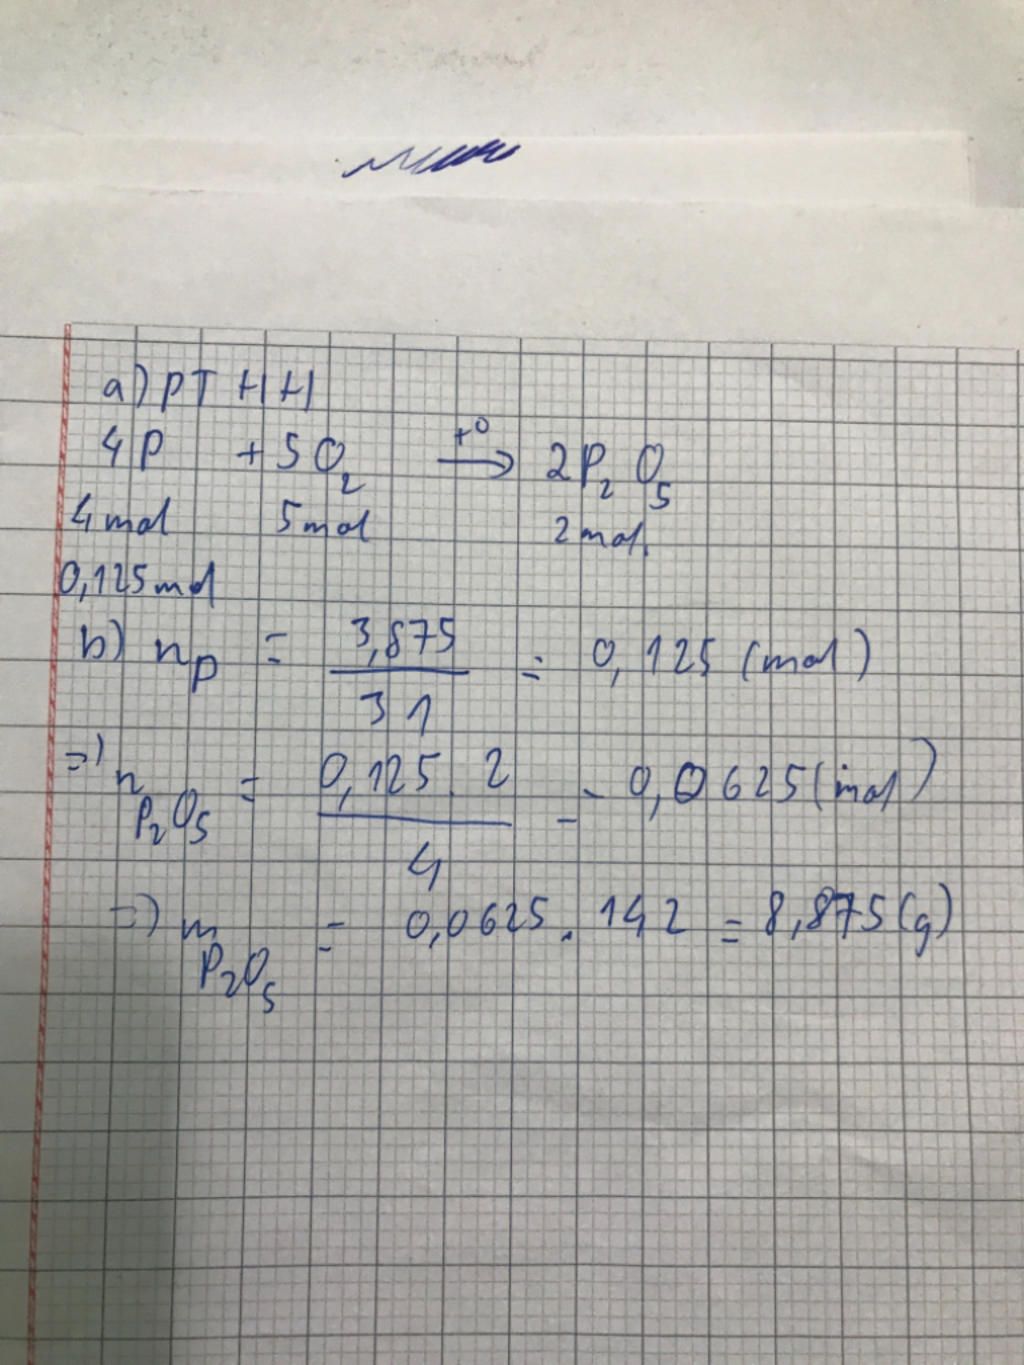 a) PTHH
4P + 5O₂ t⁰→ 2P₂O₅
4mol 5mol 2mol.
0,125mol
b) nP = 3,875/31 = 0,125 (mol)
=) nP₂O₅ = 0,125.2/4 = 0,0625 (mol)
=) mP₂O₅ = 0,0625.142 = 8,875(g)